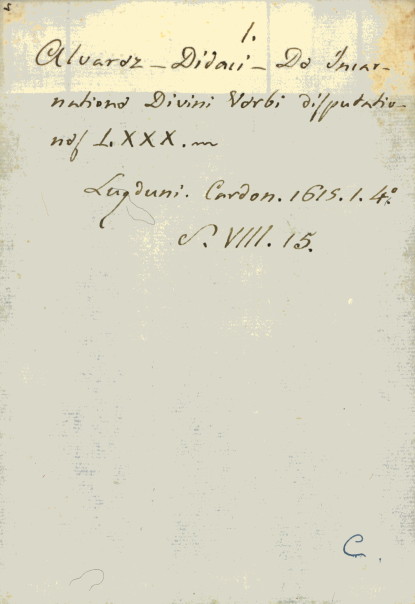 1.
Alvarez - Didaci - De Incar-
natione Divini Verbi disputatio-
nes LXXX. m
Lugduni. Cardon. 1615. 1. 4º.
S. VIII. 15.
C.